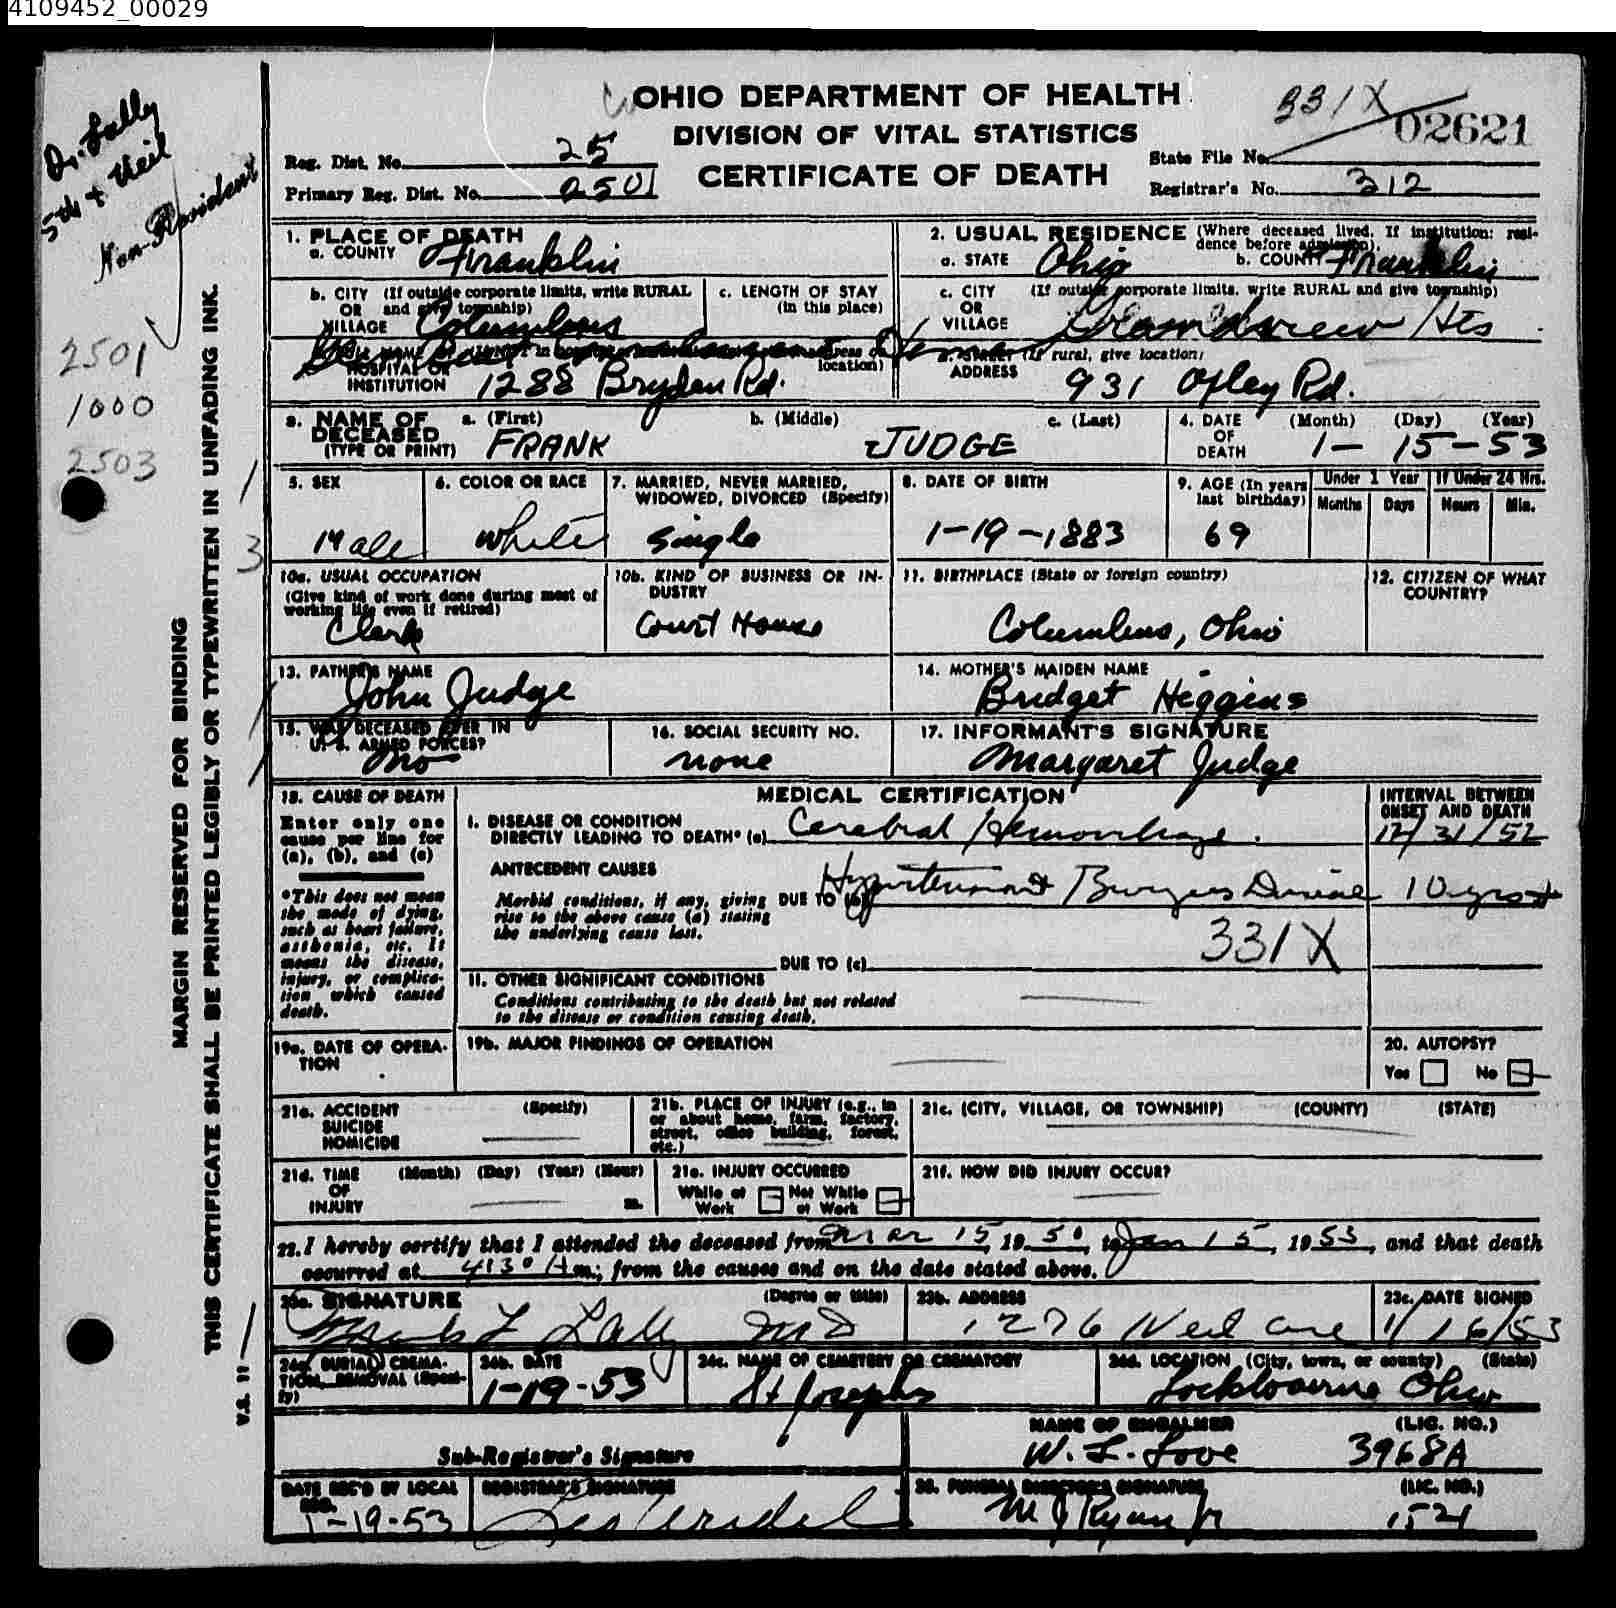 4109452_00029
Dr. Lally
5th + Neil
Non-Resident
2501
1000
2503
MARGIN RESERVED FOR BINDING
THIS CERTIFICATE SHALL BE PRINTED LEGIBLY OR TYPEWRITTEN IN UNFADING INK.
V.S. 11
1
3
OHIO DEPARTMENT OF HEALTH
DIVISION OF VITAL STATISTICS
CERTIFICATE OF DEATH
Reg. Dist. No. 25
Primary Reg. Dist. No. 2501
331X
State File No. 02621
Registrar's No. 312
1. PLACE OF DEATH
a. COUNTY Franklin
2. USUAL RESIDENCE (Where deceased lived. If institution: residence before admission).
a. STATE Ohio b. COUNTY Franklin
b. CITY (If outside corporate limits, write RURAL
OR and give township)
VILLAGE Columbus
c. LENGTH OF STAY
(in this place)
c. CITY (If outside corporate limits, write RURAL and give township)
OR
VILLAGE Grandview Hts
HOSPITAL OR
INSTITUTION 1288 Bryden Rd.
location)
d. STREET (If rural, give location)
ADDRESS 931 Oxley Rd.
3. NAME OF DECEASED
(TYPE OR PRINT)
a. (First) FRANK
b. (Middle)
c. (Last) JUDGE
4. DATE OF DEATH (Month) (Day) (Year)
1-15-53
5. SEX
Male
6. COLOR OR RACE
white
7. MARRIED, NEVER MARRIED, WIDOWED, DIVORCED (Specify)
Single
8. DATE OF BIRTH
1-19-1883
9. AGE (In years last birthday)
69
Under 1 Year
Months Days
If Under 24 Hrs.
Hours Min.
10a. USUAL OCCUPATION
(Give kind of work done during most of working life even if retired)
Clerk
10b. KIND OF BUSINESS OR INDUSTRY
Court House
11. BIRTHPLACE (State or foreign country)
Columbus, Ohio
12. CITIZEN OF WHAT COUNTRY?
13. FATHER'S NAME
John Judge
14. MOTHER'S MAIDEN NAME
Bridget Higgins
15. WAS DECEASED EVER IN U. S. ARMED FORCES?
no
16. SOCIAL SECURITY NO.
none
17. INFORMANT'S SIGNATURE
Margaret Judge
18. CAUSE OF DEATH
Enter only one cause per line for (a), (b), and (c)
*This does not mean the mode of dying, such as heart failure, asthenia, etc. It means the disease, injury, or complication which caused death.
MEDICAL CERTIFICATION
INTERVAL BETWEEN ONSET AND DEATH
I. DISEASE OR CONDITION
DIRECTLY LEADING TO DEATH* (a) Cerebral Hemorrhage. 12/31/52
ANTECEDENT CAUSES
Morbid conditions, if any, giving rise to the above cause (a) stating the underlying cause last.
DUE TO (b) Hypertension + Buerger's Disease 10 yrs +
331X
DUE TO (c)
II. OTHER SIGNIFICANT CONDITIONS
Conditions contributing to the death but not related to the disease or condition causing death.
19a. DATE OF OPERATION
19b. MAJOR FINDINGS OF OPERATION
20. AUTOPSY?
Yes No
21a. ACCIDENT (Specify)
SUICIDE
HOMICIDE
21b. PLACE OF INJURY (e.g., in or about home, farm, factory, street, office building, forest, etc.)
21c. (CITY, VILLAGE, OR TOWNSHIP) (COUNTY) (STATE)
21d. TIME (Month) (Day) (Year) (Hour)
OF
INJURY m.
21e. INJURY OCCURRED
While at Work Not While at Work
21f. HOW DID INJURY OCCUR?
22. I hereby certify that I attended the deceased from Mar 15, 1950, to Jan 15, 1953, and that death
occurred at 4:30 A m.; from the causes and on the date stated above.
23a. SIGNATURE (Degree or title)
Lally MD
23b. ADDRESS
1276 Neil ave
23c. DATE SIGNED
1/16/53
24a. BURIAL, CREMATION, REMOVAL (Specify)
24b. DATE
1-19-53
24c. NAME OF CEMETERY OR CREMATORY
St Josephs
24d. LOCATION (City, town, or county) (State)
Lockbourne Ohio
Sub-Registrar's Signature
NAME OF EMBALMER (LIC. NO.)
W. L. Love 3968A
DATE REC'D BY LOCAL REG.
1-19-53
REGISTRAR'S SIGNATURE
25. FUNERAL DIRECTOR'S SIGNATURE (LIC. NO.)
M J Ryan Jr 1521